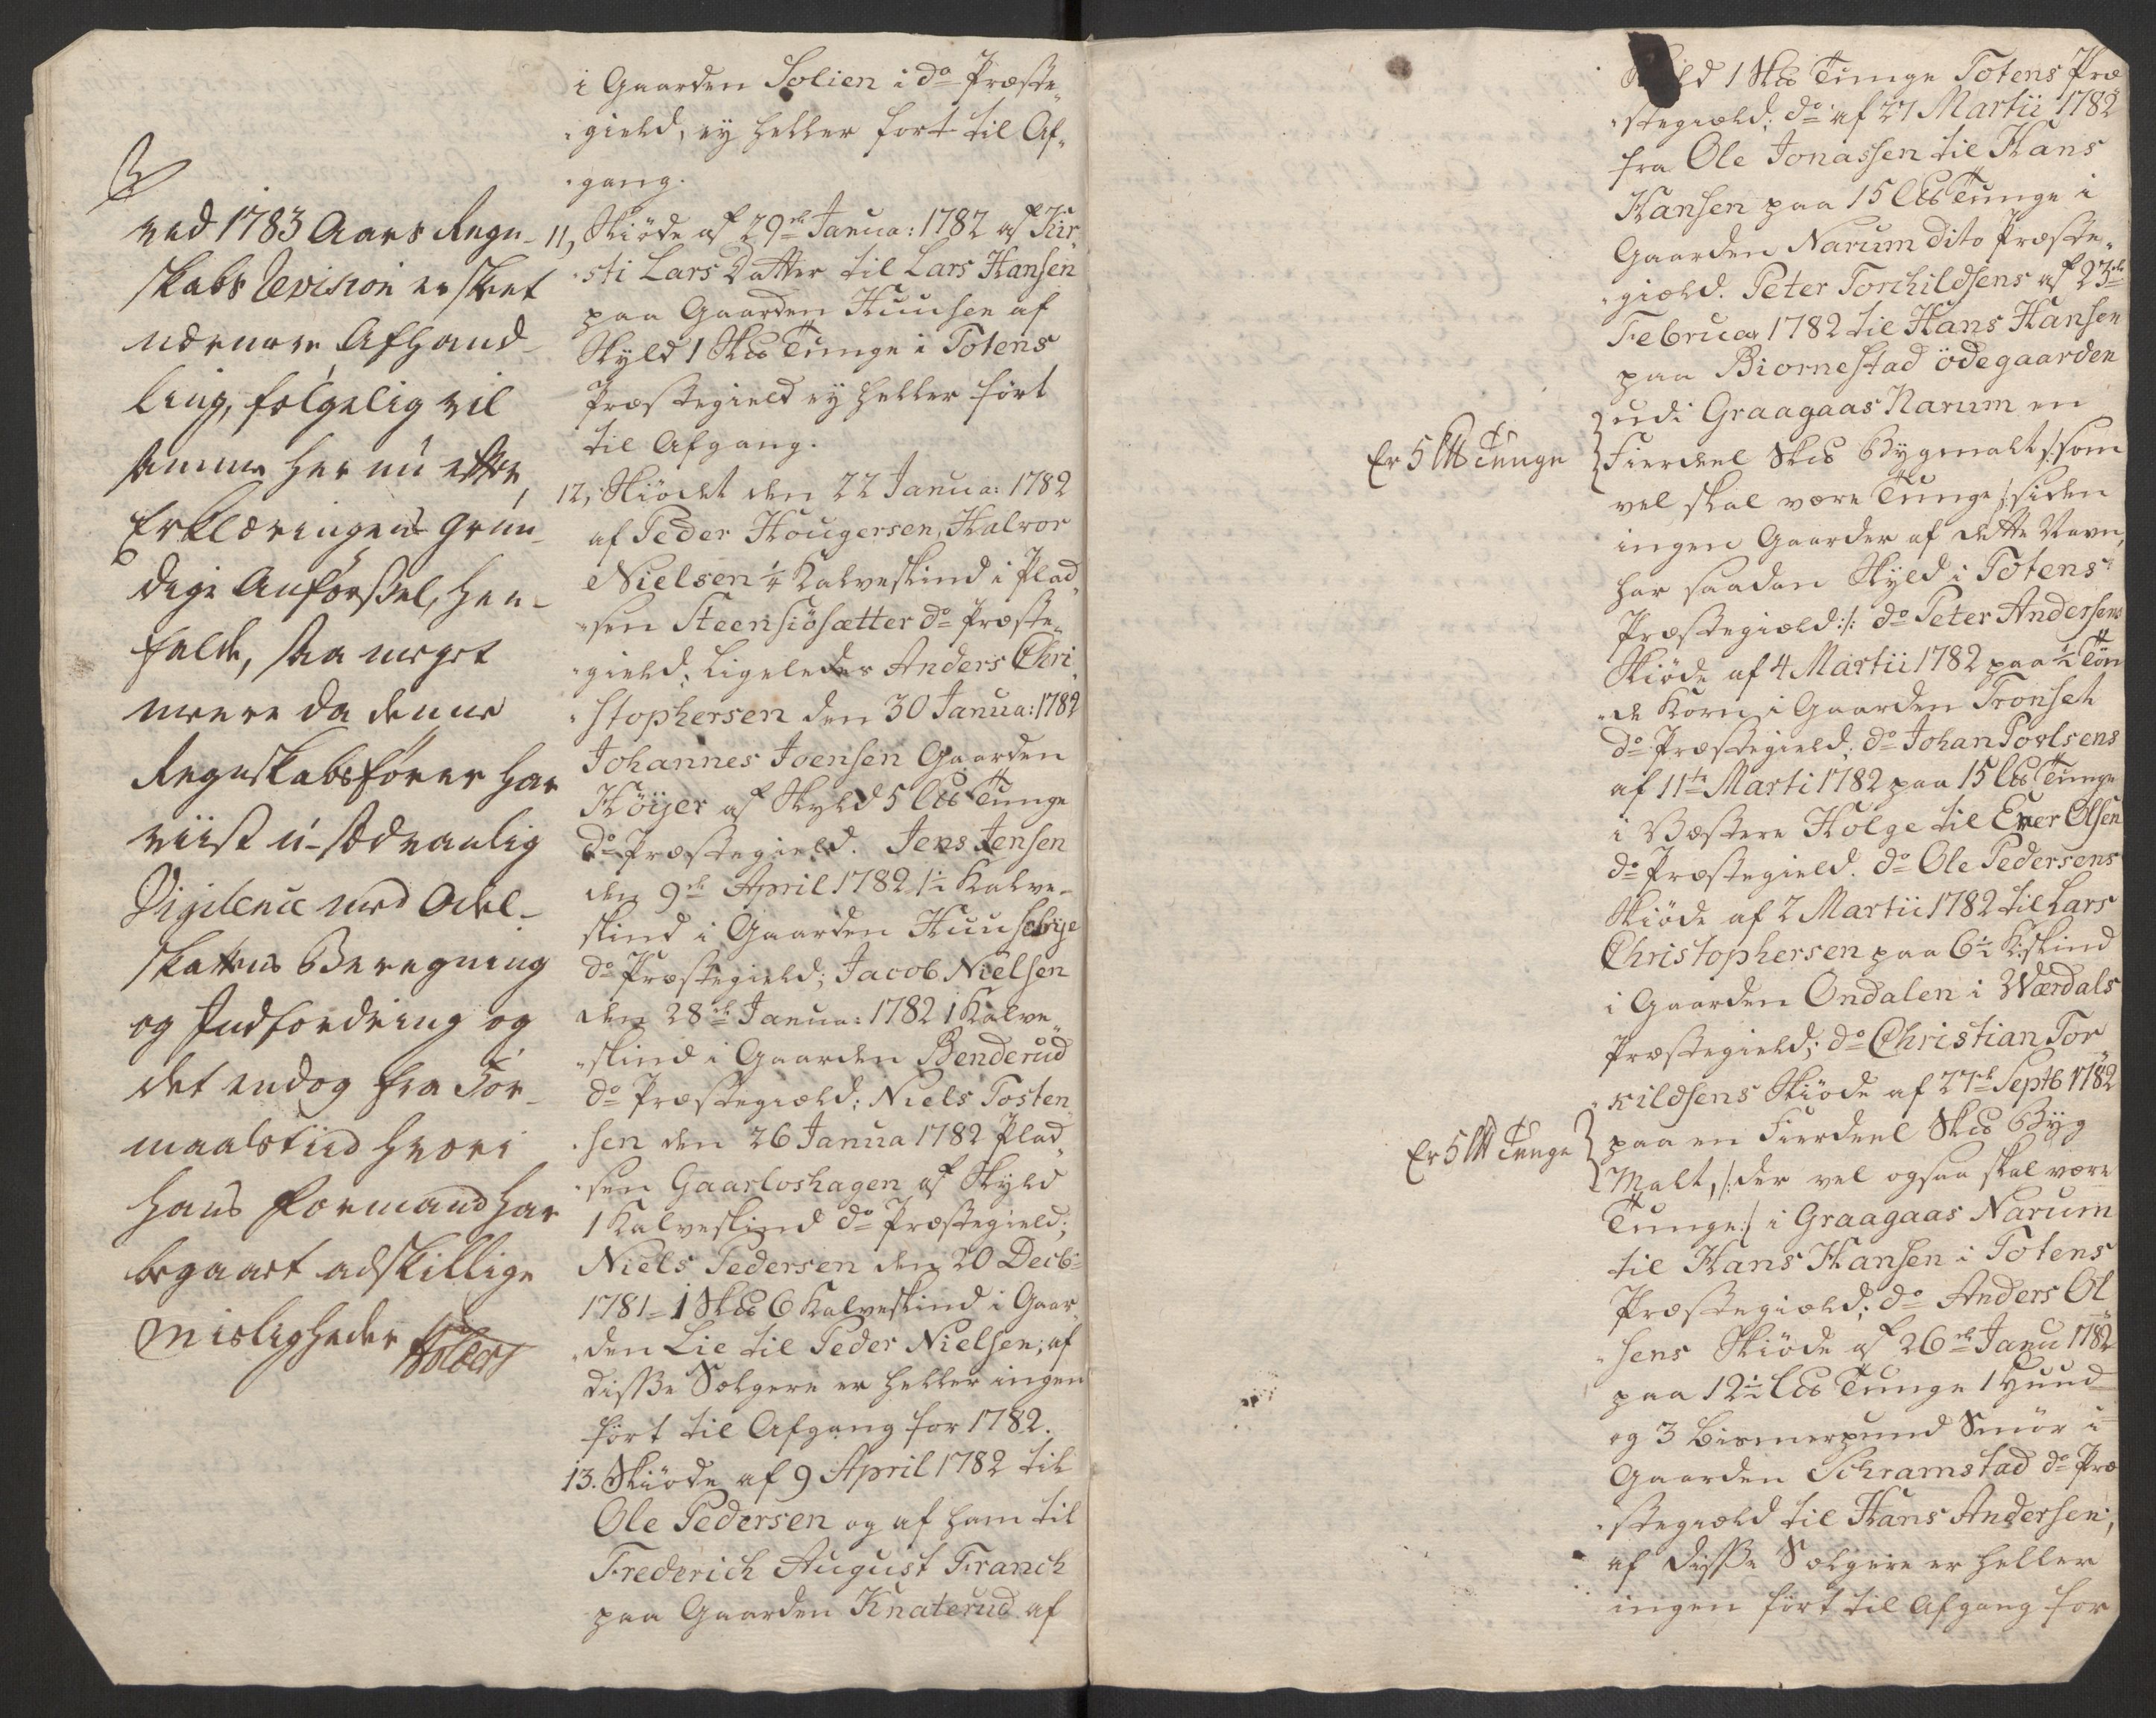 ved 1783 Aars Regn-
skabs Revision er skeet
nærmere Afhand-
ling, følgelig vil
samme her nu efter
Erklæringens grun-
dige Anførsel, hen-
falde, saa meget
meere da denne
Regnskabsfører har
viist u-sædvanlig
Vigilence med Odel-
skattens Beregning
og Indfordring og
det endog fra For-
maalstiid hvori
hans Formand har
begaaet adskillige
Misligheder
i Gaarden Solien i do Præste-
gield, ey heller ført til Af-
gang.
11, Skiøde af 29de Janua: 1782 af Kir-
sti Lars Datter til Lars Hansen
paa Gaarden Huusen af
Skyld 1 Sk℔ Tunge i Totens
Præstegield ey heller ført
til Afgang.
12, Skiødet den 22 Janua: 1782
af Peder Hougersen, Halvor
Nielsen ¼ Kalveskind i Plad-
sen Steensiösætter do Præste-
gield; Ligeledes Anders Chri-
stophersen den 30 Janua: 1782
Johannes Joensen Gaarden
Höijer af Skyld 5 L℔ Tunge
do Præstegield. Jens Jensen
den 9de April 1782 1½ Kalve-
skind i Gaarden Huusebye
do Præstegield; Jacob Nielsen
den 28de Janua: 1782 1 Kalve-
skind i Gaarden Benderud
do Præstegiæld; Niels Tosten-
sen den 26 Janua 1782 Plad-
sen Gaarloshagen af Skyld
1 Kalveskind do Præstegield;
Niels Pedersen den 20 Decb:
1781 - 1 Sk℔ 6 Kalveskind i Gaar-
den Lie til Peder Nielsen; af
disse Sælgere er heller ingen
ført til Afgang for 1782.
13. Skiøde af 9 April 1782 til
Ole Pedersen og af ham til
Frederich August Franch
paa Gaarden Knaterud af
Skyld 1 Sk℔ Tunge Totens Præ-
stegiæld; do af 27 Martii 1782
fra Ole Jonassen til Hans
Hansen paa 15 L℔ Tunge i
Gaarden Narum dito Præste-
giæld. Peter Torchildsens af 23de
Februar 1782 til Hans Hansen
paa Biornestad ödegaarden
udi Graagaas Narum en
Er 5 L℔ Tunge
Fierdeel Sk℔ Bygmalt /: som
vel skal være Tunge /: siden
ingen Gaarder af dette Navn,
har saadan Skyld i Totens
Præstegiæld :/: do Peter Andersens
Skiøde af 4 Martii 1782 paa ½ Tøn-
de Korn i Gaarden Tronset
do Præstegield; do Johan Povlsens
af 11te Marti 1782 paa 15 L℔ Tunge
i Væstere Holge til Ever Olsen
do Præstegield. do Ole Pedersens
Skiøde af 2 Martii 1782 til Lars
Christophersen paa 6½ K:skind
i Gaarden Ondalen i Wærdals
Præstegield; do Christian Tor-
kildsens Skiøde af 27de Septb 1782
paa en Fierdeel Sk℔ Byg
Er 5 L℔ Tunge
Malt, /: der vel ogsaa skal være
Tunge :/ i Graagaas Narum
til Hans Hansen i Totens
Præstegiæld; do Anders Ol-
sens Skiøde af 26de Janu 1782
paa 12½ L℔ Tunge 1 Huud
og 3 Bismerpund Smör i
Gaarden Schramstad do Præ-
stegiæld til Hans Andersen;
af disse Sælgere er heller
ingen ført til Afgang for